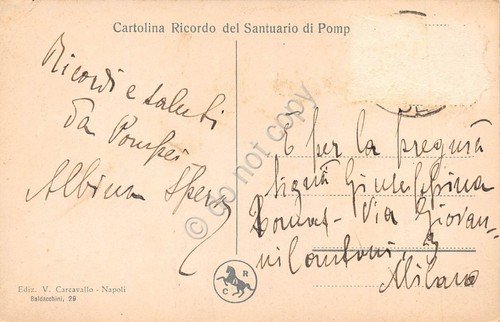 Cartolina Ricordo del Santuario di Pomp
Ricordi e saluti
da Pompei
Albina
E per la pregma
Signa Giuseppina
Via Giovan-
ni Cantoni, 3
Milano
Ediz. V. Carcavallo - Napoli
Baldacchini, 29
C R
do not copy